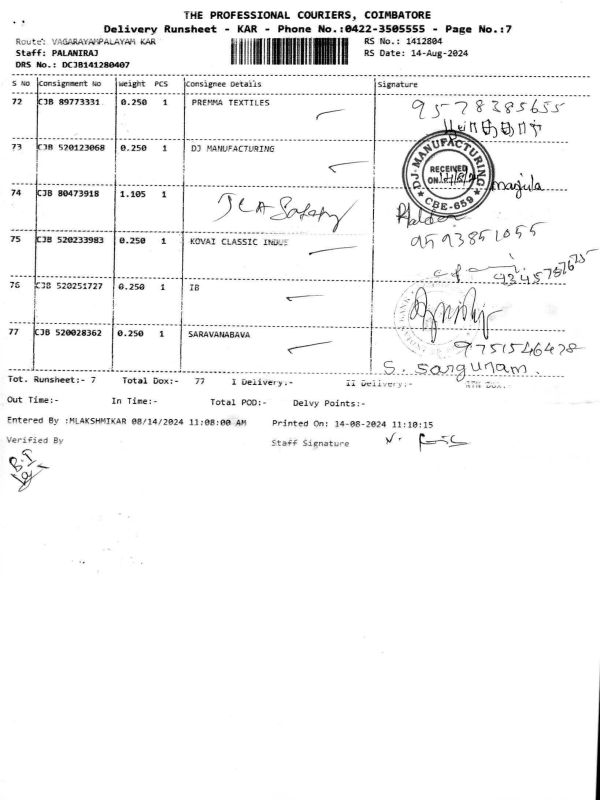 THE PROFESSIONAL COURIERS, COIMBATORE
Delivery Runsheet - KAR - Phone No.:0422-3505555 - Page No.:7
Route: VAGARAYAMPALAYAM KAR RS No.: 1412804
Staff: PALANIRAJ RS Date: 14-Aug-2024
DRS No.: DCJB141280407
S No Consignment No Weight PCS Consignee Details Signature
72 CJB 89773331 0.250 1 PREMMA TEXTILES 9578385655
73 CJB 520123068 0.250 1 DJ MANUFACTURING
DJ-MANUFACTURING
RECEIVED
ON
CBE-659
manjula
74 CJB 80473918 1.105 1
75 CJB 520233983 0.250 1 KOVAI CLASSIC INDUS 9593851055
76 CJB 520251727 0.250 1 IB
77 CJB 520028362 0.250 1 SARAVANABAVA 9751546478
S. Sargunam.
Tot. Runsheet:- 7 Total Dox:- 77 I Delivery:- II Delivery:- RTN Dox:-
Out Time:- In Time:- Total POD:- Delvy Points:-
Entered By :MLAKSHMIKAR 08/14/2024 11:08:00 AM Printed On: 14-08-2024 11:10:15
Verified By Staff Signature